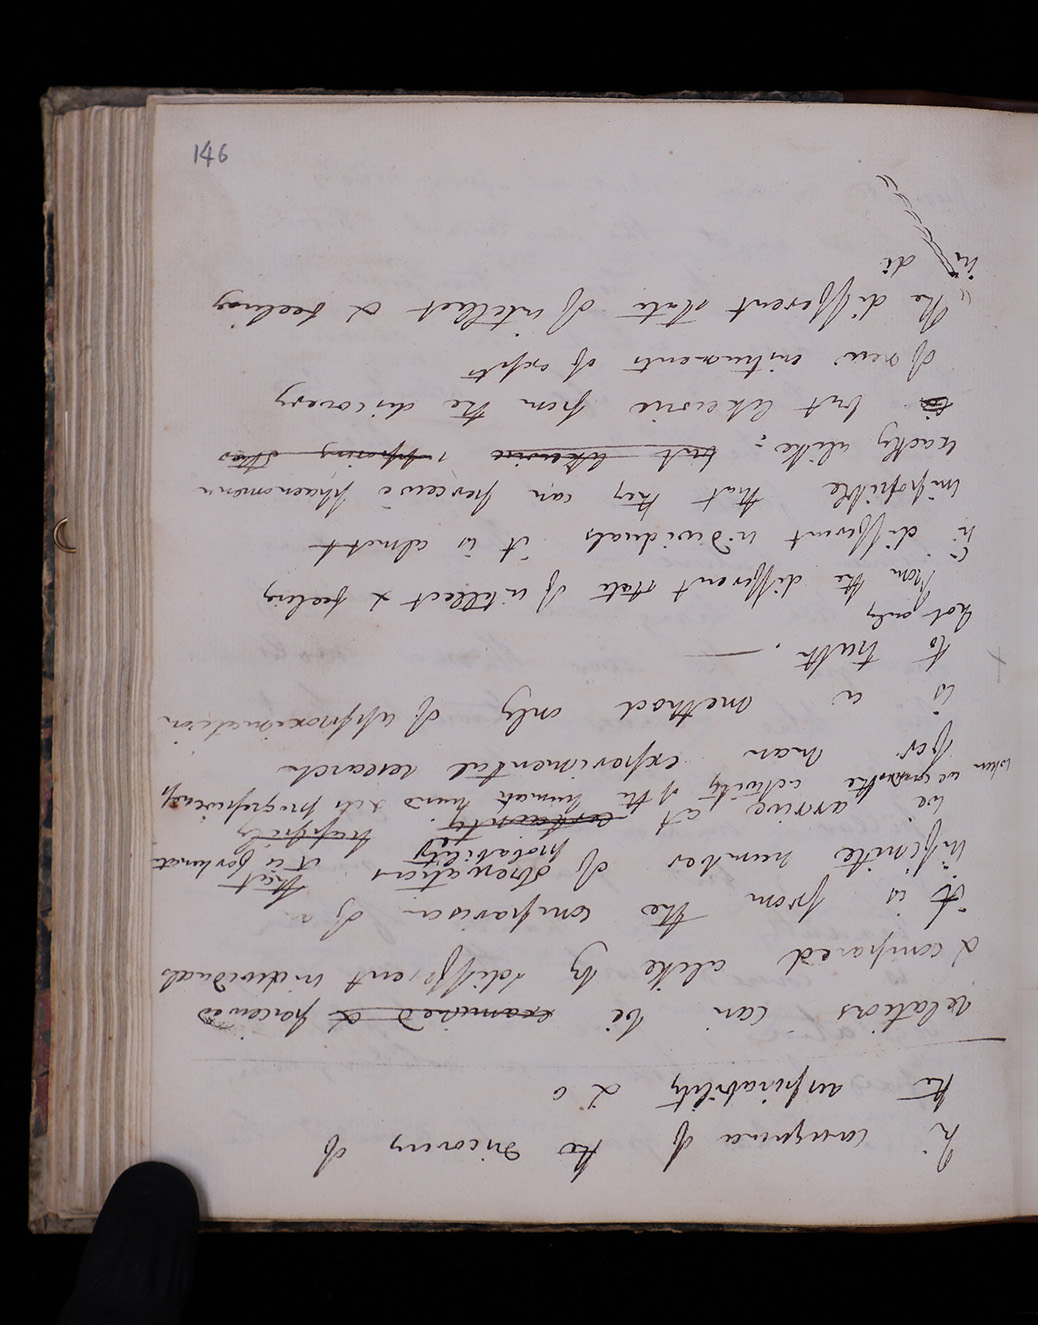 146
In consequence of the discovery of
the respirability &c
relations can be examined & perceived
& compared alike by different individuals
it is from the comparison of an
infinite number of observations that it is fortunate
we arrive at certainty. probability happily
when we the activity of the human mind & its progressiveness
for man experimental research
is a method only of approximation
to truth. —
not only
from the different state of intellect & feeling
in different individuals it is almost
impossible that they can perceive phaenomena
exactly alike; but likewise supposing
but likewise from the discovery
of new instruments of expts
"The different state of intellect & feeling
in di